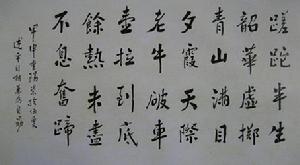 蹉跎半
韶華虛擲
青山滿目
夕霞天際
老牛破車
壹拉到底
餘熱未盡
不息奮蹄
甲申重陽